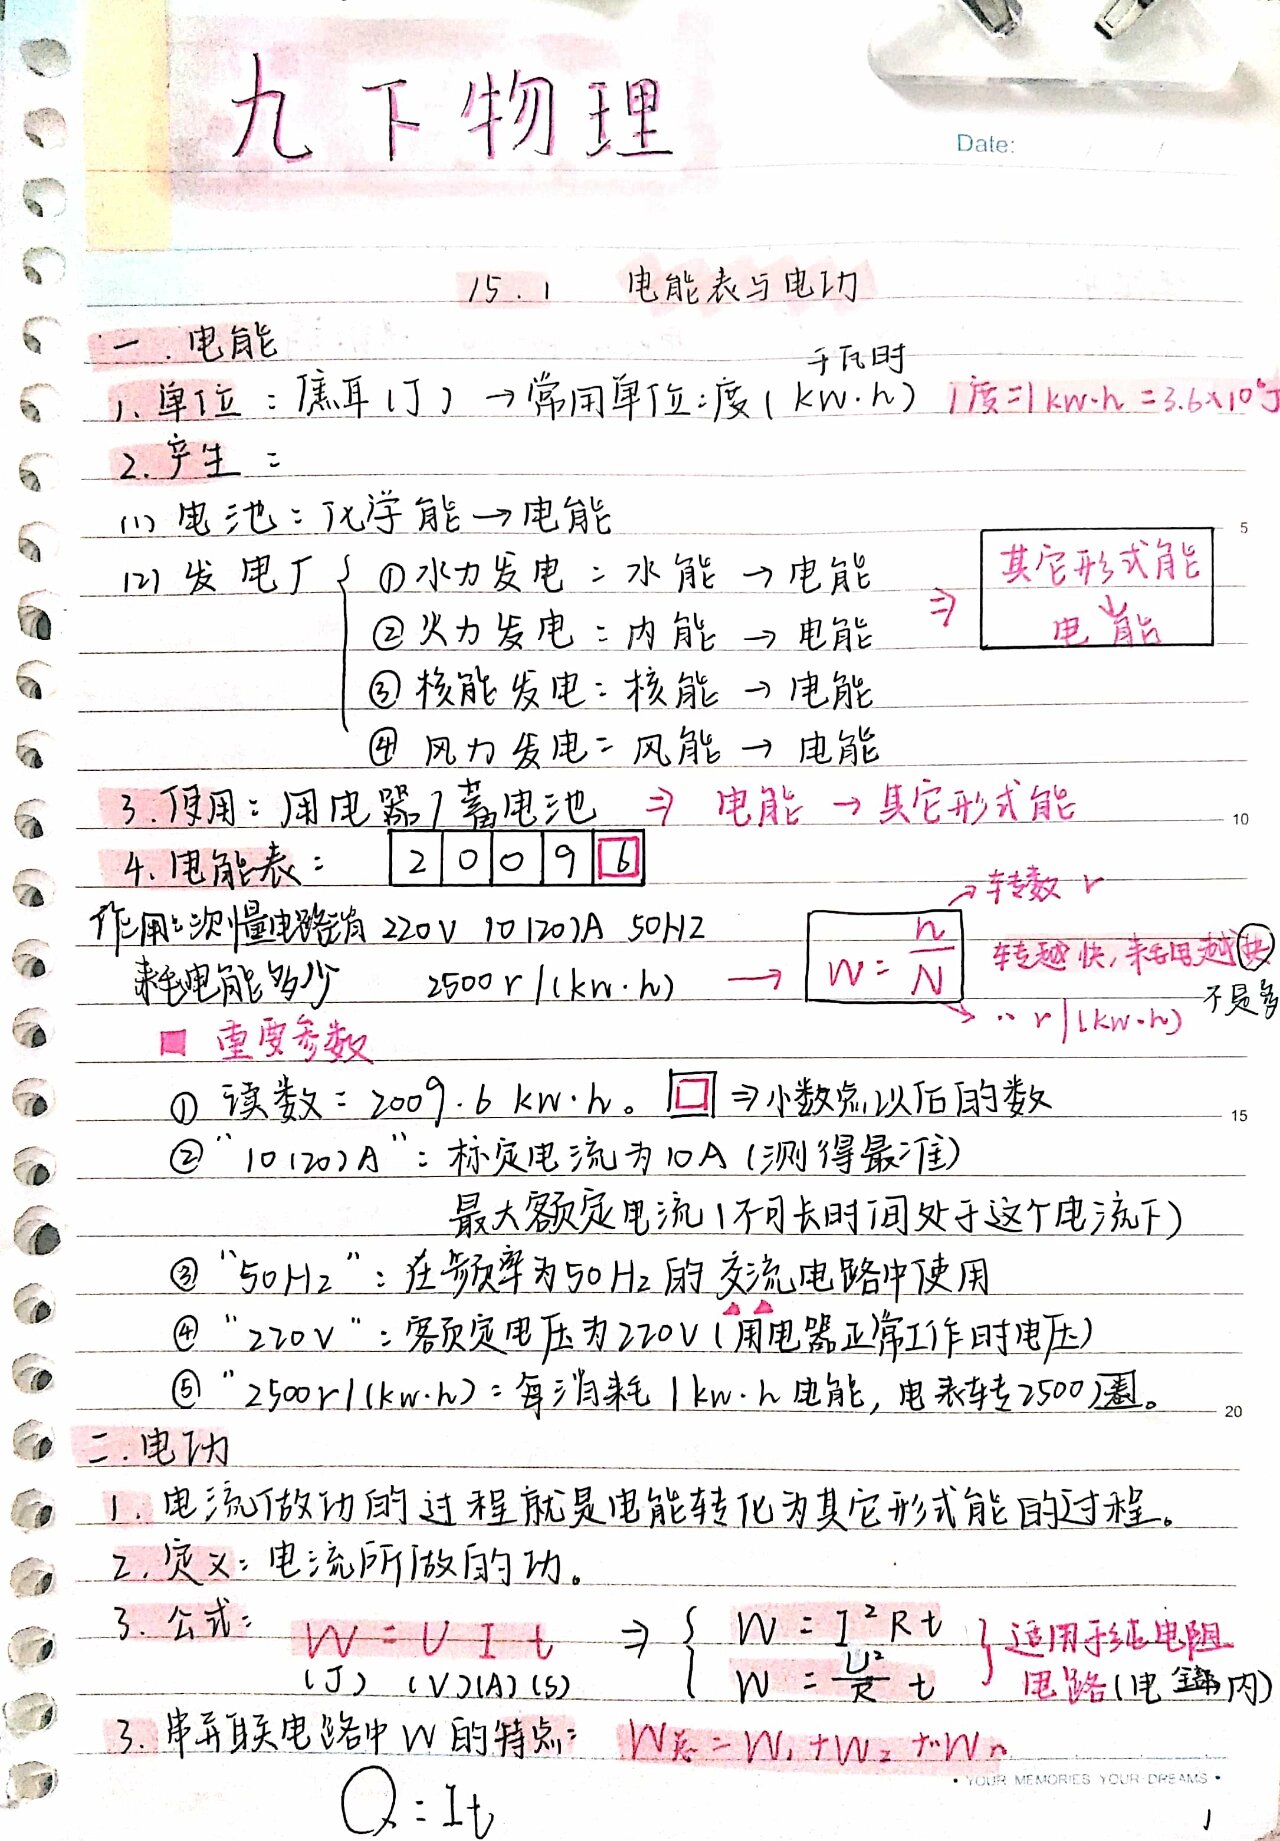 九下物理
Date:
15.1 电能表与电功
一.电能
千瓦时
1.单位:焦耳(J)→常用单位:度(kw·h) 1度=1kw·h=3.6×10⁶J
2.产生:
(1)电池:化学能→电能
5
(2)发电厂{①水力发电:水能→电能 ⇒ 其它形式能
↓
②火力发电:内能→电能 电能
③核能发电:核能→电能
④风力发电:风能→电能
3.使用:用电器/蓄电池 ⇒ 电能→其它形式能
10
4.电能表: 2 0 0 9 6
→转数 r
作用:测量电路消 220V 10(20)A 50HZ
耗电能多少 2500r/(kw·h) → W=n/N 转越快,耗电越快
不是多
→" r/(kw·h)
■ 重要参数
①读数:2009.6kw·h。 □⇒小数点以后的数
15
②"10(20)A":标定电流为10A(测得最准)
最大额定电流(不可长时间处于这个电流下)
③"50Hz":在频率为50Hz的交流电路中使用
④"220V":额定电压为220V(用电器正常工作时电压)
⑤"2500r/(kw·h):每消耗1kw·h电能,电表转2500圈。
20
二.电功
1.电流做功的过程就是电能转化为其它形式能的过程。
2.定义:电流所做的功。
3.公式: W=UIt ⇒ {W=I²Rt }适用于纯电阻
(J) (V)(A)(s) W=U²/R t 电路(电全部内)
3.串并联电路中W的特点: W总=W₁+W₂+…Wn
• YOUR MEMORIES YOUR DREAMS •
Q=It
1